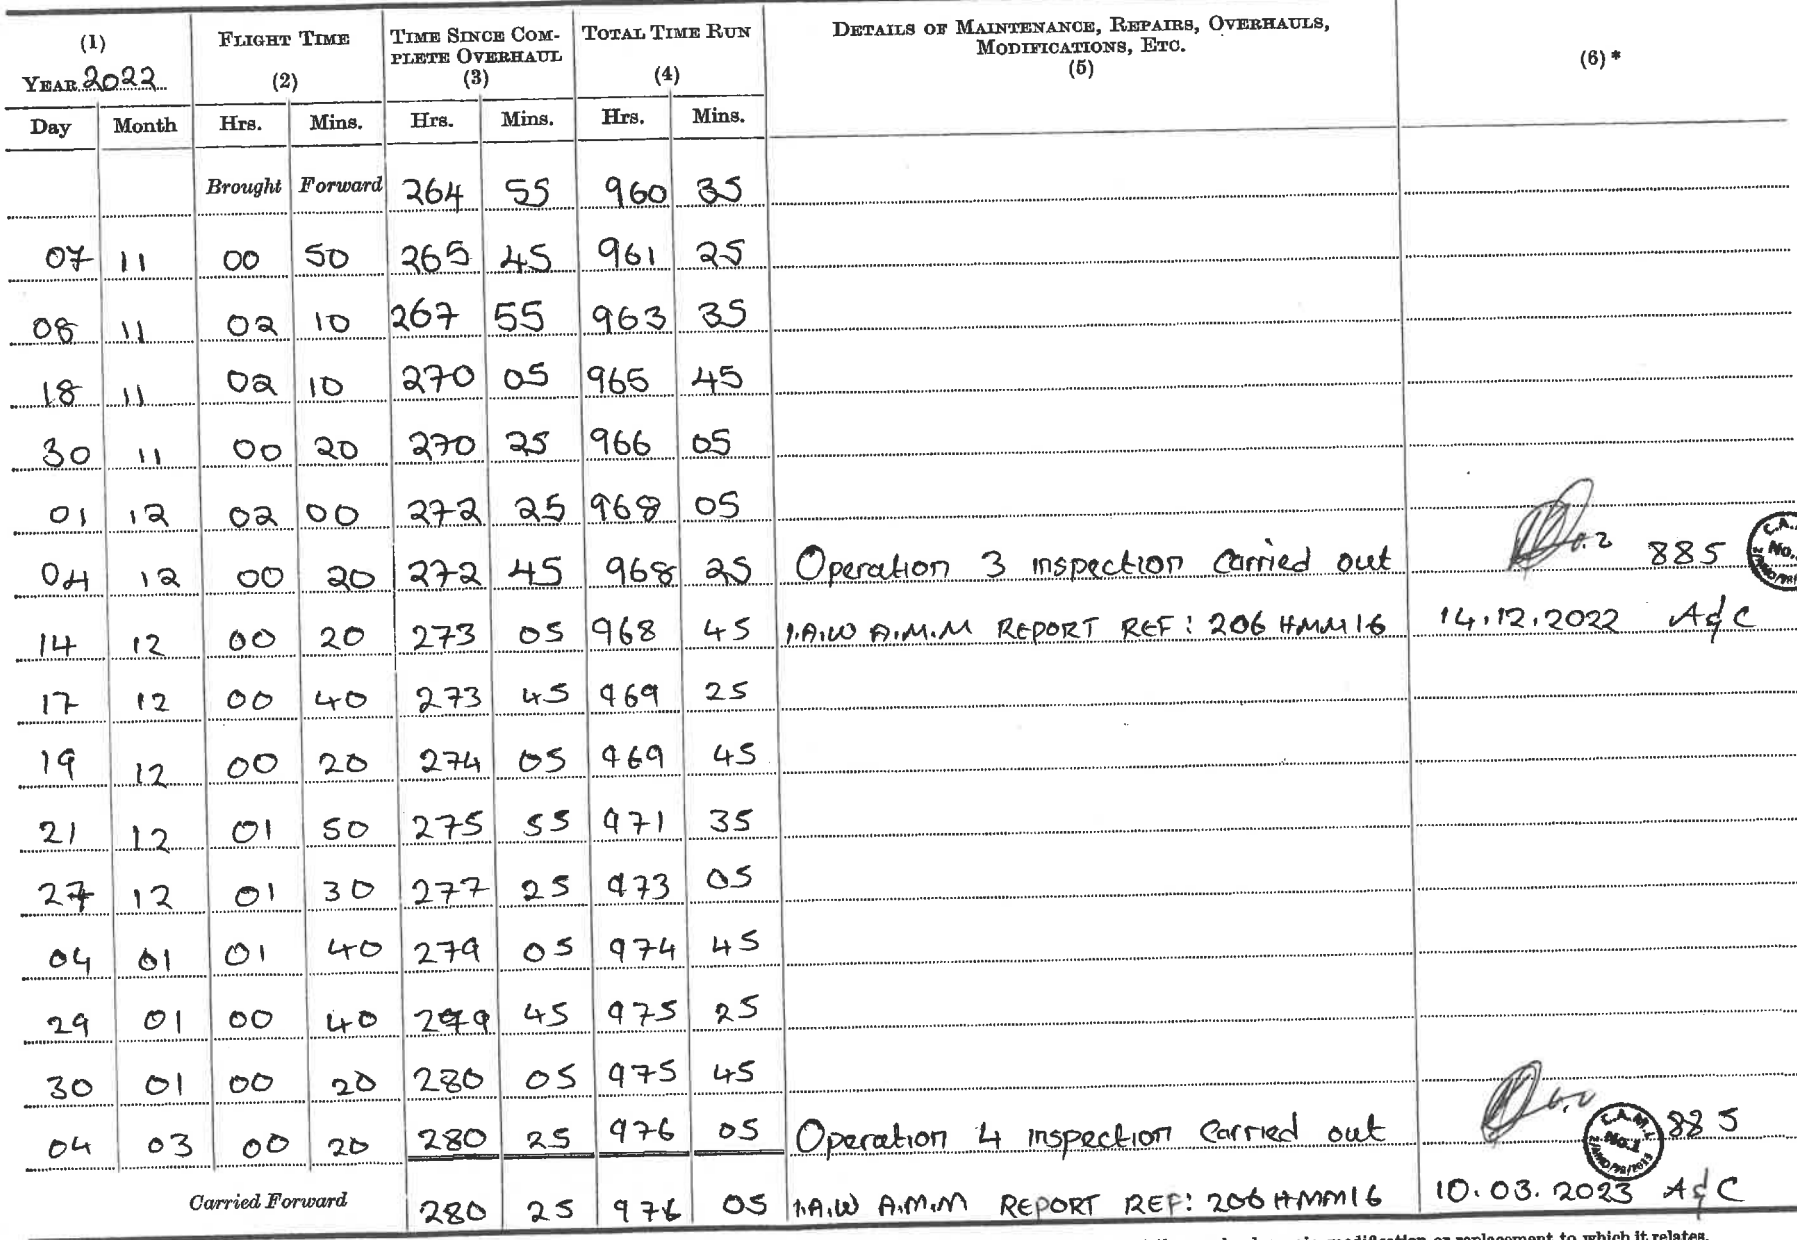 (1) FLIGHT TIME TIME SINCE COM- TOTAL TIME RUN DETAILS OF MAINTENANCE, REPAIRS, OVERHAULS,
PLETE OVERHAUL MODIFICATIONS, ETC.
YEAR 2022 (2) (3) (4) (5) (6) *
Day Month Hrs. Mins. Hrs. Mins. Hrs. Mins.
Brought Forward 264 55 960 35
07 11 00 50 265 45 961 25
08 11 02 10 267 55 963 35
18 11 02 10 270 05 965 45
30 11 00 20 270 25 966 05
01 12 02 00 272 25 968 05
04 12 00 20 272 45 968 25 Operation 3 inspection carried out 885
14 12 00 20 273 05 968 45 I.A.W A.M.M REPORT REF: 206 HMM16 14.12.2022 A&C
17 12 00 40 273 45 969 25
19 12 00 20 274 05 969 45
21 12 01 50 275 55 971 35
27 12 01 30 277 25 973 05
04 01 01 40 279 05 974 45
29 01 00 40 279 45 975 25
30 01 00 20 280 05 975 45
04 03 00 20 280 25 976 05 Operation 4 inspection carried out C.A.M.L No.1 885
Carried Forward 280 25 976 05 I.A.W A.M.M REPORT REF: 206 HMM16 10.03.2023 A&C
modification or replacement to which it relates.